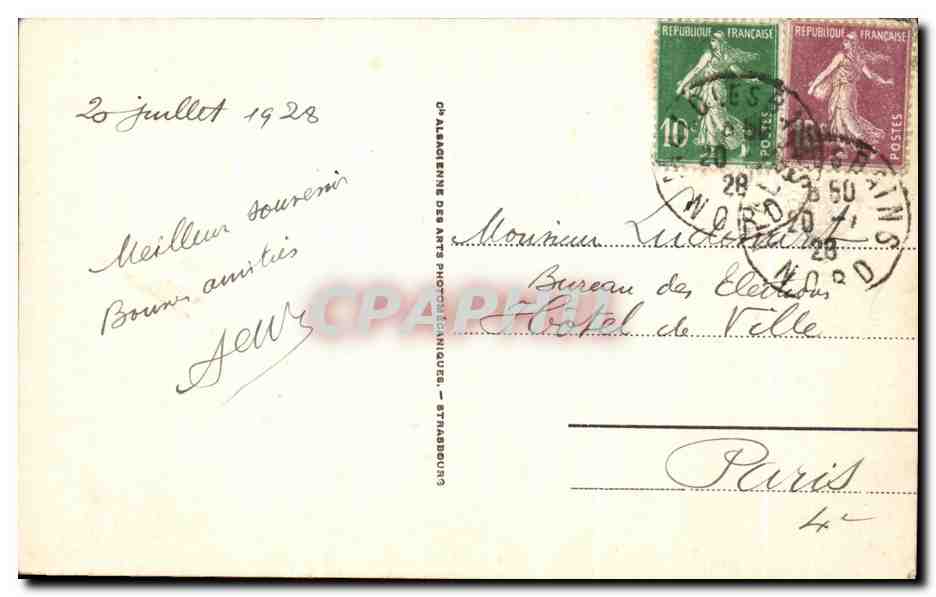 20 juillet 1928
Meilleur souvenir
Bonnes amitiés
Cie ALSACIENNE DES ARTS PHOTOMÉCANIQUES. — STRASBOURG
RÉPUBLIQUE FRANÇAISE
10c
POSTES
RÉPUBLIQUE FRANÇAISE
POSTES
20
28
NORD
BAINS
20 -
28
NORD
Monsieur
Bureau des Elections
Hôtel de Ville
Paris
4e
CPAPHIL